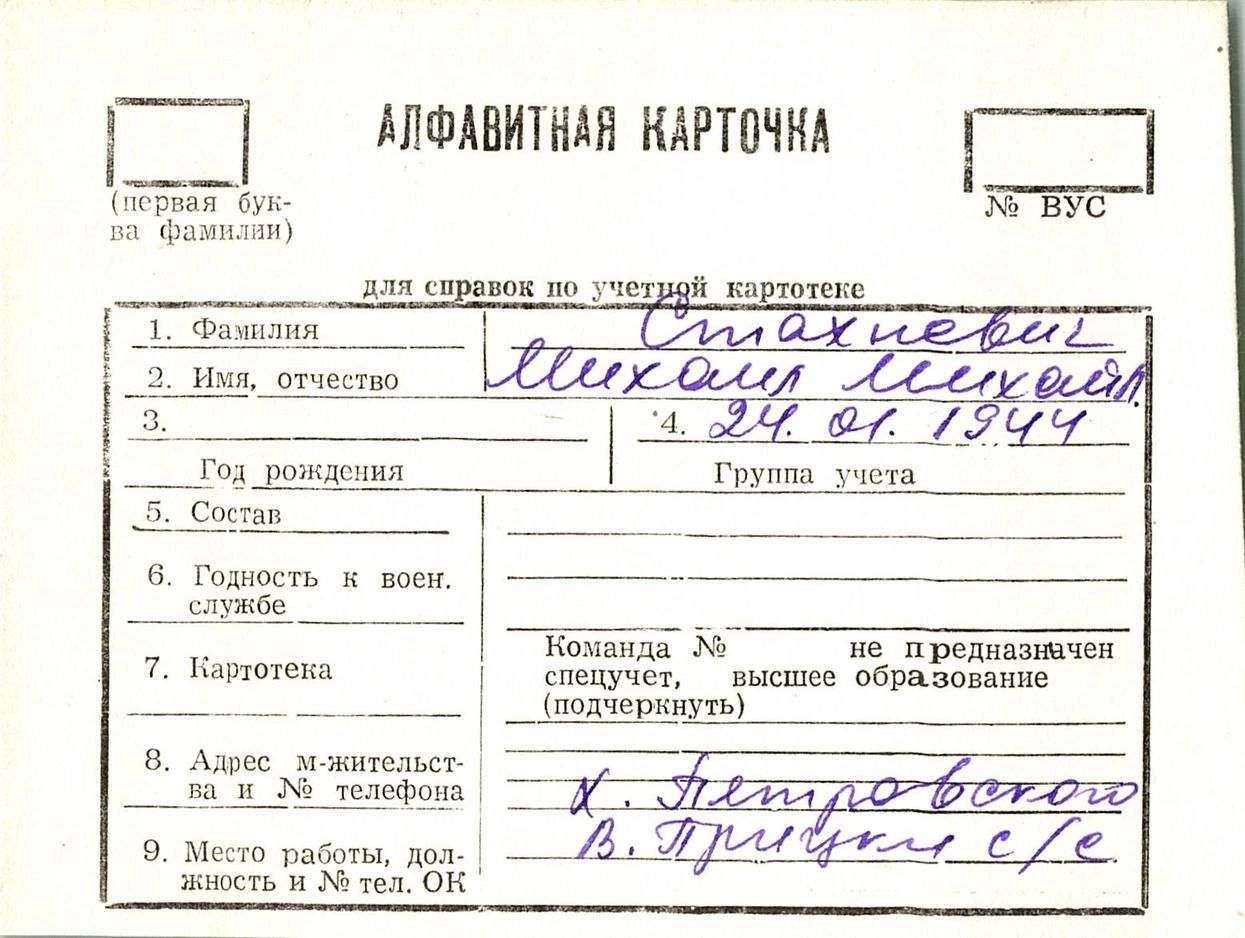 АЛФАВИТНАЯ КАРТОЧКА
(первая бук-
ва фамилии)
№ ВУС
для справок по учетной картотеке
1. Фамилия Стахневич
2. Имя, отчество Михаил Михайл.
3. 4. 24. 01. 1944
Год рождения Группа учета
5. Состав
6. Годность к воен.
службе
7. Картотека
Команда № не предназначен
спецучет, высшее образование
(подчеркнуть)
8. Адрес м-жительст-
ва и № телефона
х. Пятровского
В. Прицки с/с
9. Место работы, дол-
жность и № тел. ОК